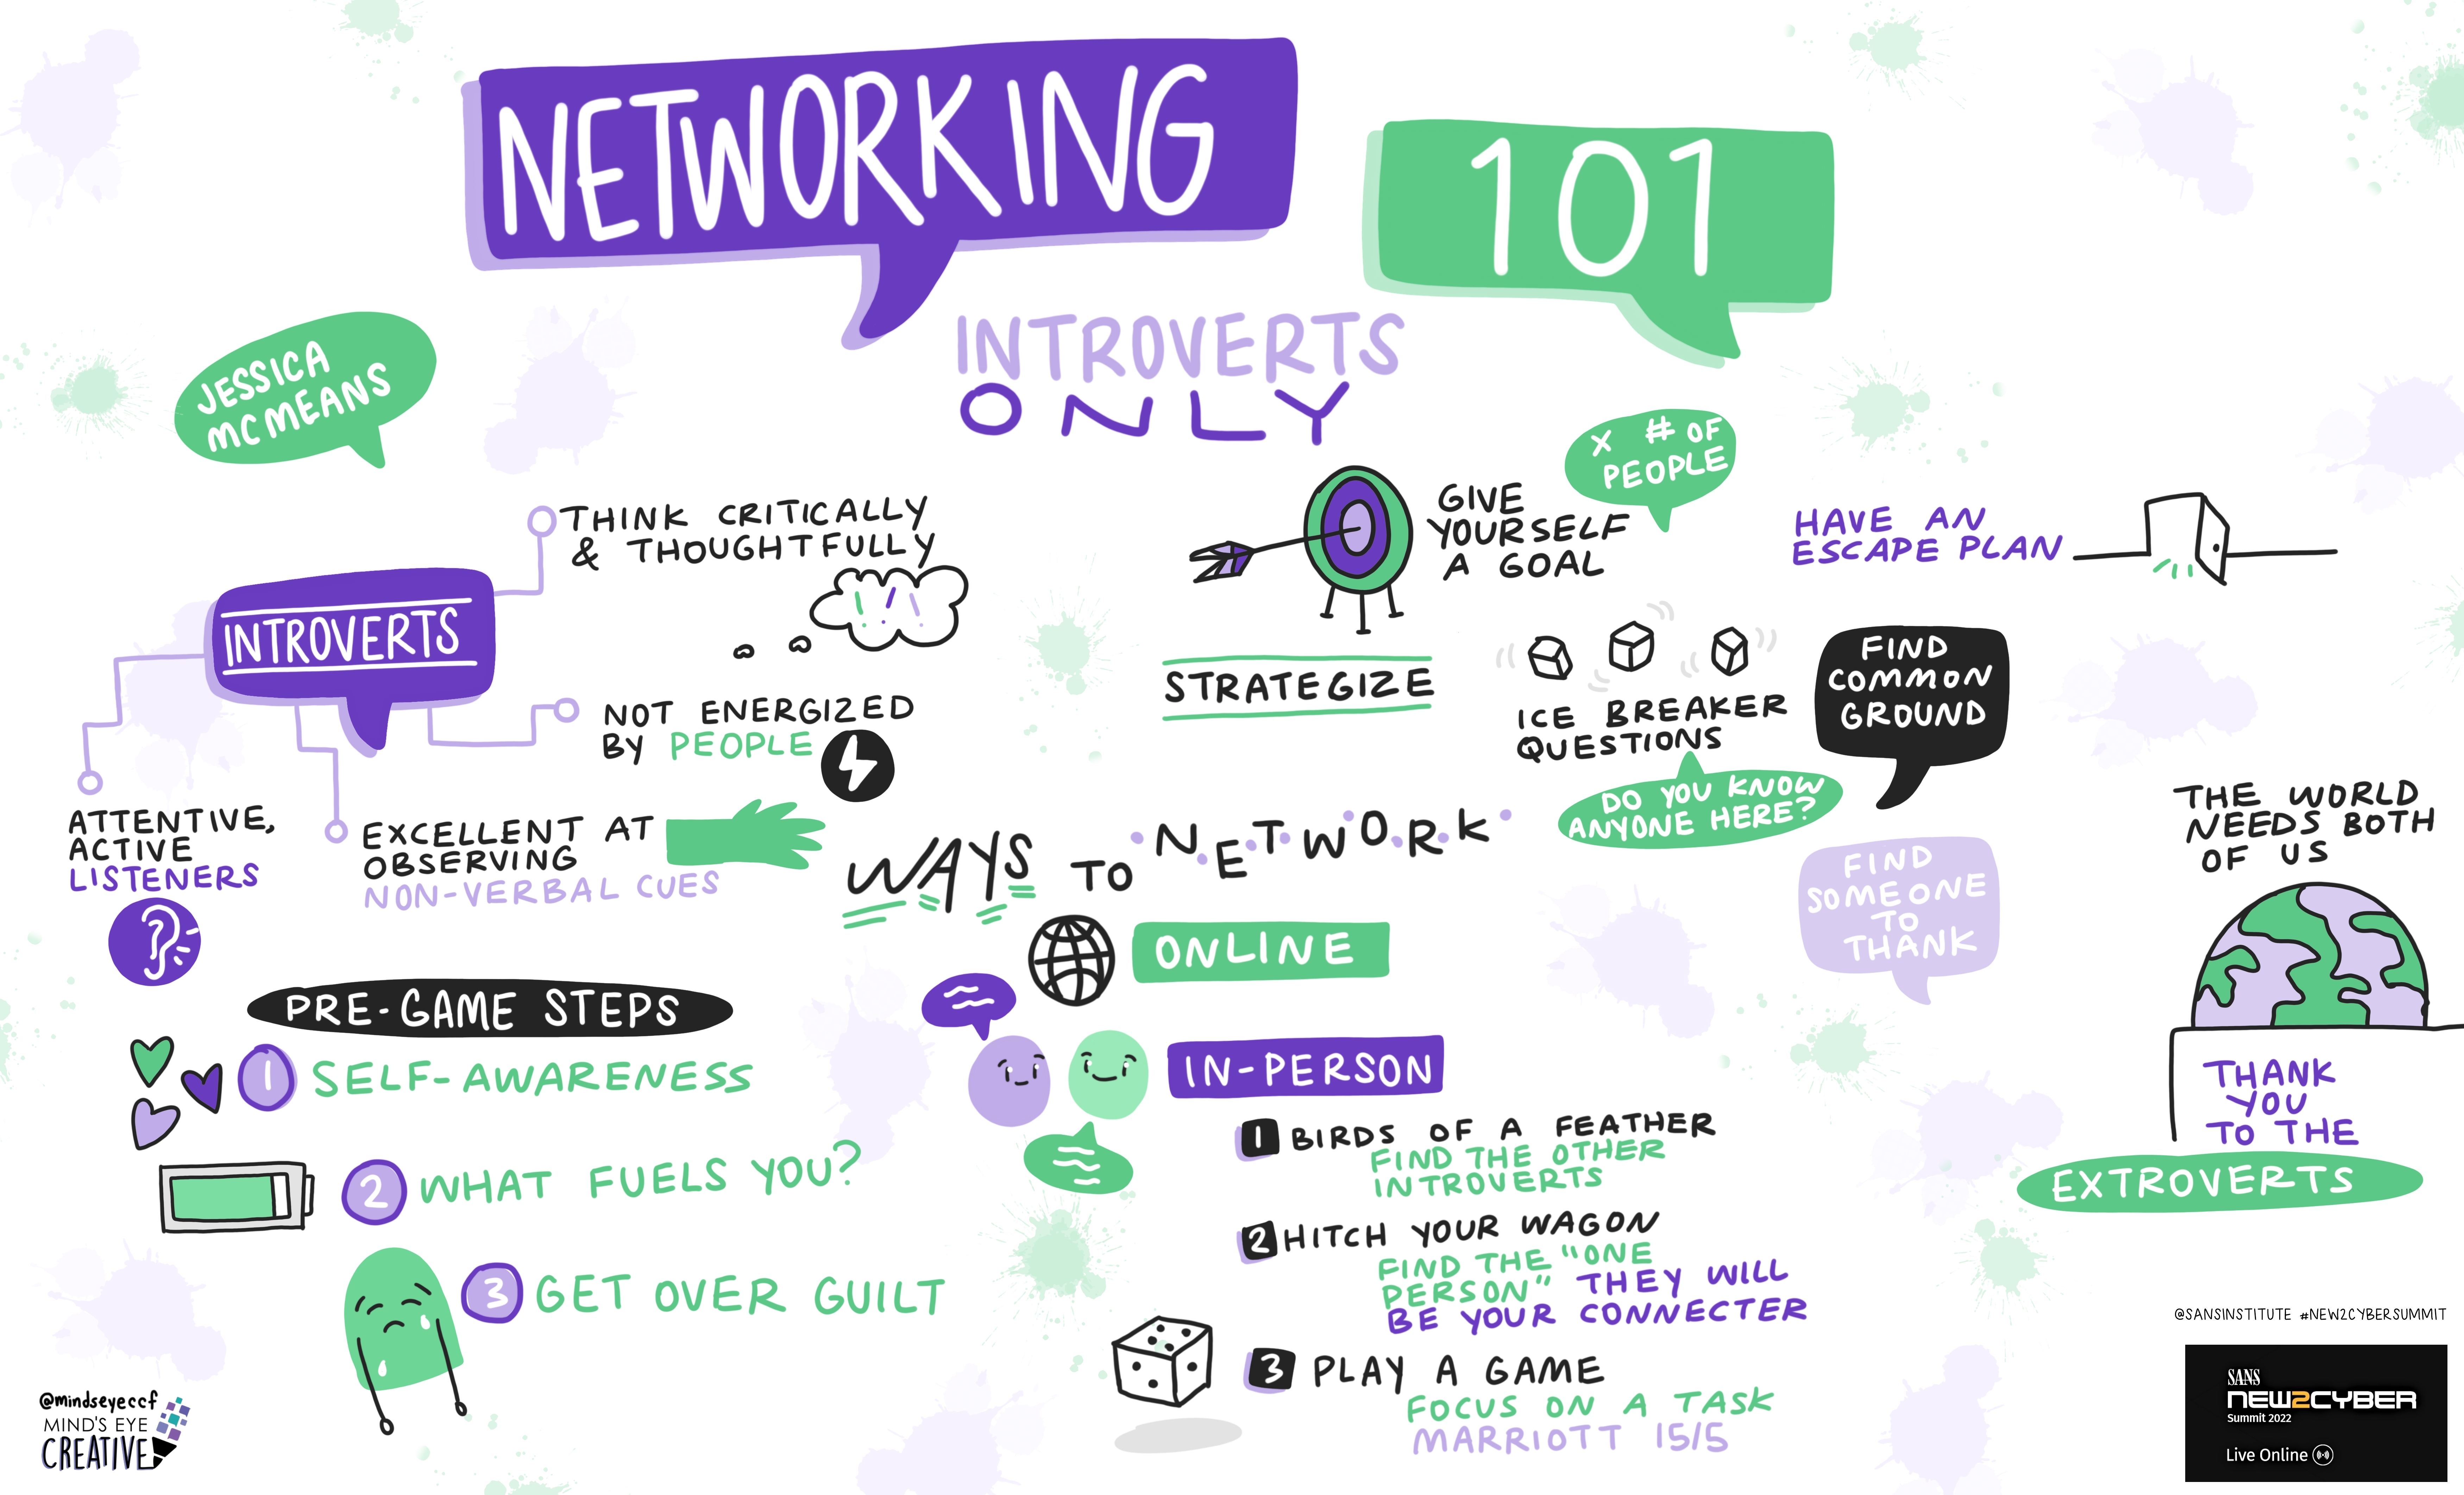 NETWORKING
101
INTROVERTS
ONLY
JESSICA
MCMEANS
INTROVERTS
THINK CRITICALLY
& THOUGHTFULLY
NOT ENERGIZED
BY PEOPLE
ATTENTIVE,
ACTIVE
LISTENERS
EXCELLENT AT
OBSERVING
NON-VERBAL CUES
PRE-GAME STEPS
1 SELF-AWARENESS
2 WHAT FUELS YOU?
3 GET OVER GUILT
STRATEGIZE
GIVE
YOURSELF
A GOAL
X # OF
PEOPLE
HAVE AN
ESCAPE PLAN
ICE BREAKER
QUESTIONS
DO YOU KNOW
ANYONE HERE?
FIND
COMMON
GROUND
FIND
SOMEONE
TO
THANK
WAYS TO NETWORK
ONLINE
IN-PERSON
1 BIRDS OF A FEATHER
FIND THE OTHER
INTROVERTS
2 HITCH YOUR WAGON
FIND THE "ONE
PERSON" THEY WILL
BE YOUR CONNECTER
3 PLAY A GAME
FOCUS ON A TASK
MARRIOTT 15/5
THE WORLD
NEEDS BOTH
OF US
THANK
YOU
TO THE
EXTROVERTS
@mindseyeccf
MIND'S EYE
CREATIVE
@SANSINSTITUTE #NEW2CYBERSUMMIT
SANS
NEW2CYBER
Summit 2022
Live Online